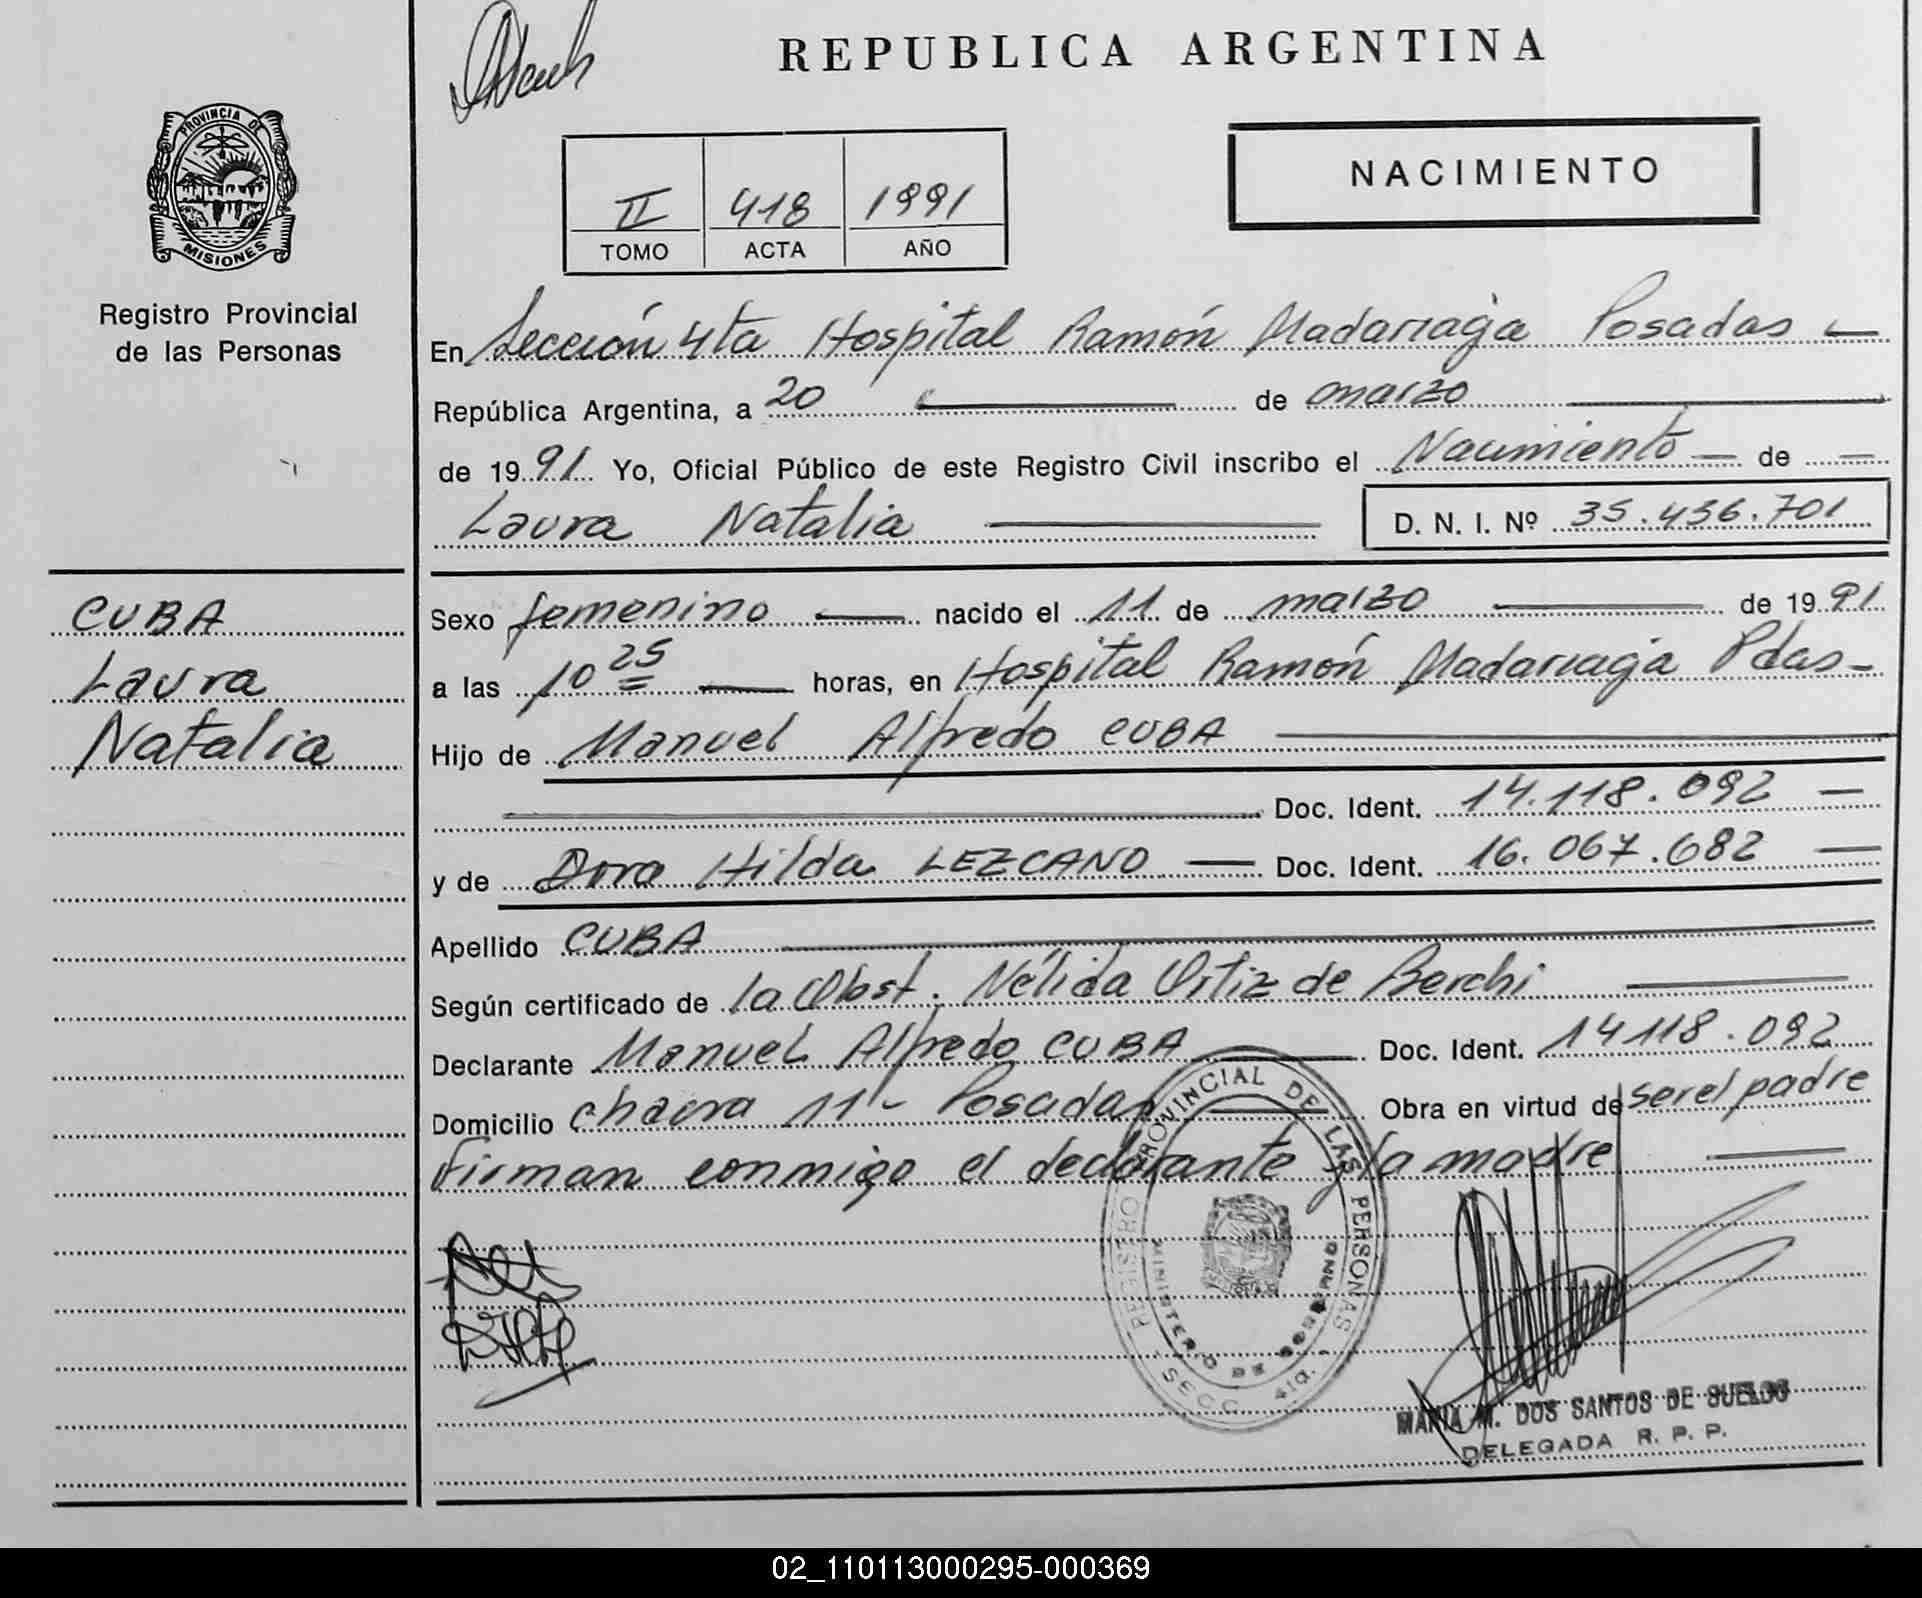 REPUBLICA ARGENTINA
PROVINCIA DE
MISIONES
Registro Provincial
de las Personas
II 418 1991
TOMO ACTA AÑO
NACIMIENTO
En Sección 4ta Hospital Ramón Madariaga Posadas
República Argentina, a 20 de marzo
de 1991. Yo, Oficial Público de este Registro Civil inscribo el Nacimiento de
Laura Natalia
D. N. I. Nº 35.436.701
CUBA
Laura
Natalia
Sexo femenino nacido el 11 de marzo de 1991
a las 10 25 horas, en Hospital Ramón Madariaga Pdas
Hijo de Manuel Alfredo CUBA
Doc. Ident. 14.118.092
y de Dora Hilda LEZCANO Doc. Ident. 16.067.682
Apellido CUBA
Según certificado de la Obst. Nélida Ortiz de Berchi
Declarante Manuel Alfredo CUBA Doc. Ident. 14118.092
Domicilio chacra 11 - Posadas Obra en virtud de ser el padre
Firman conmigo el declarante y la madre
REGISTRO PROVINCIAL DE LAS PERSONAS
MINISTERIO DE GOBIERNO
SECC. 4ta.
MARIA M. DOS SANTOS DE SUELDO
DELEGADA R. P. P.
02_110113000295-000369